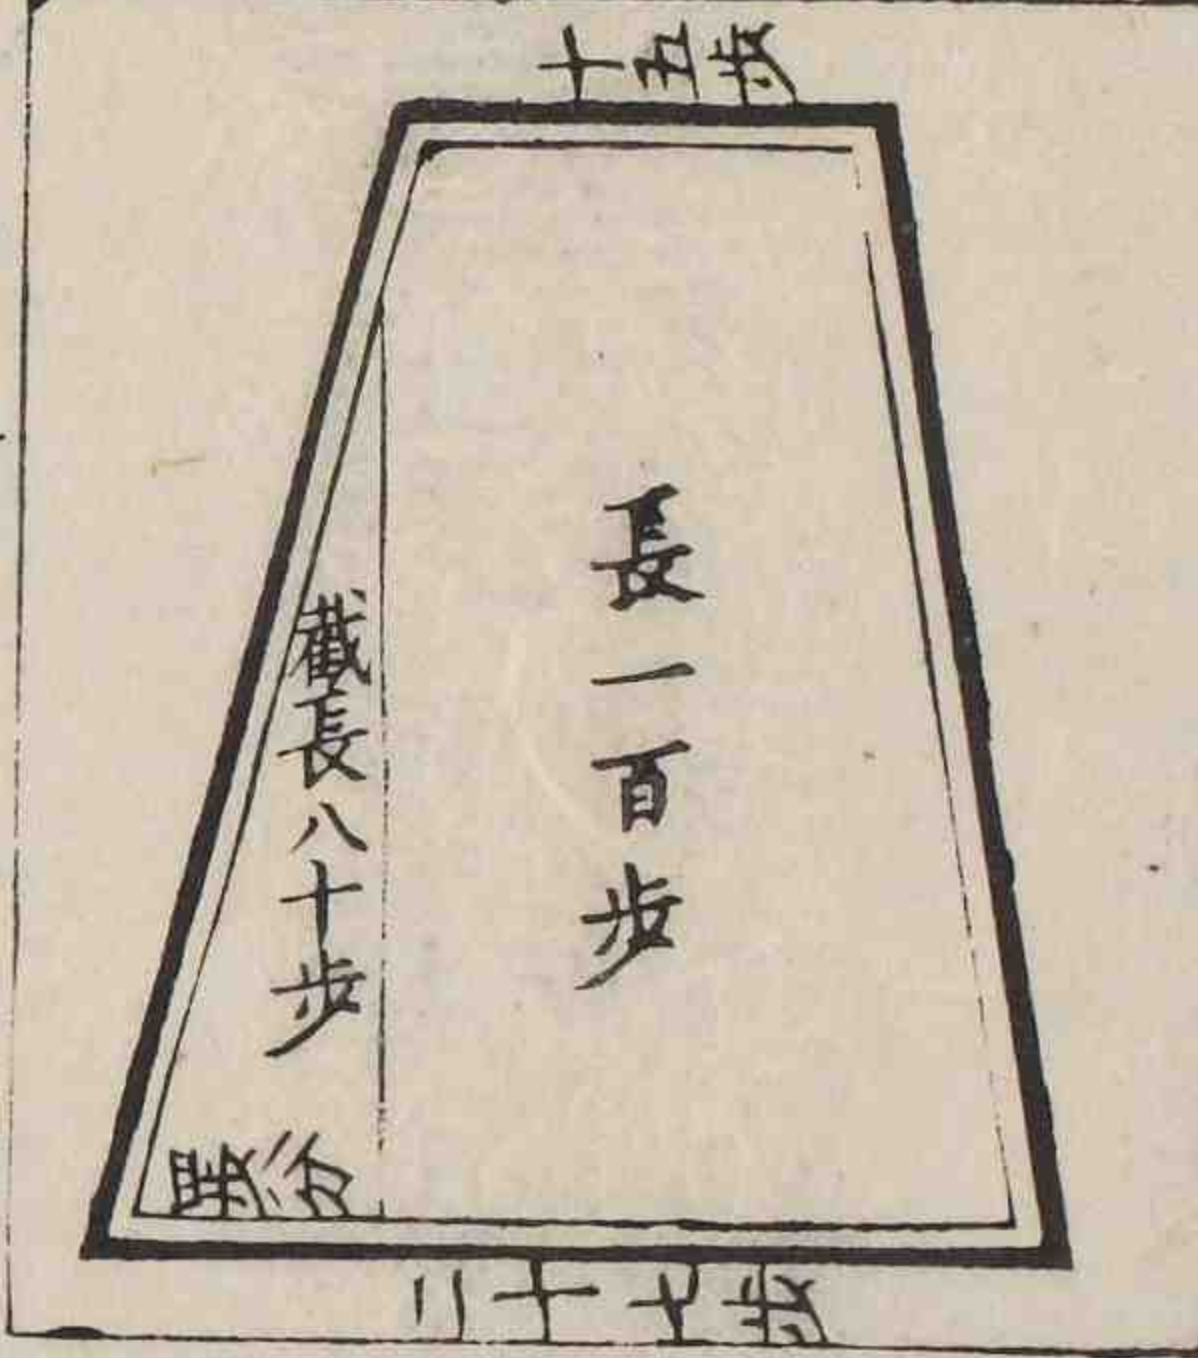 十五步
長一百步
截長八十步
二十七步